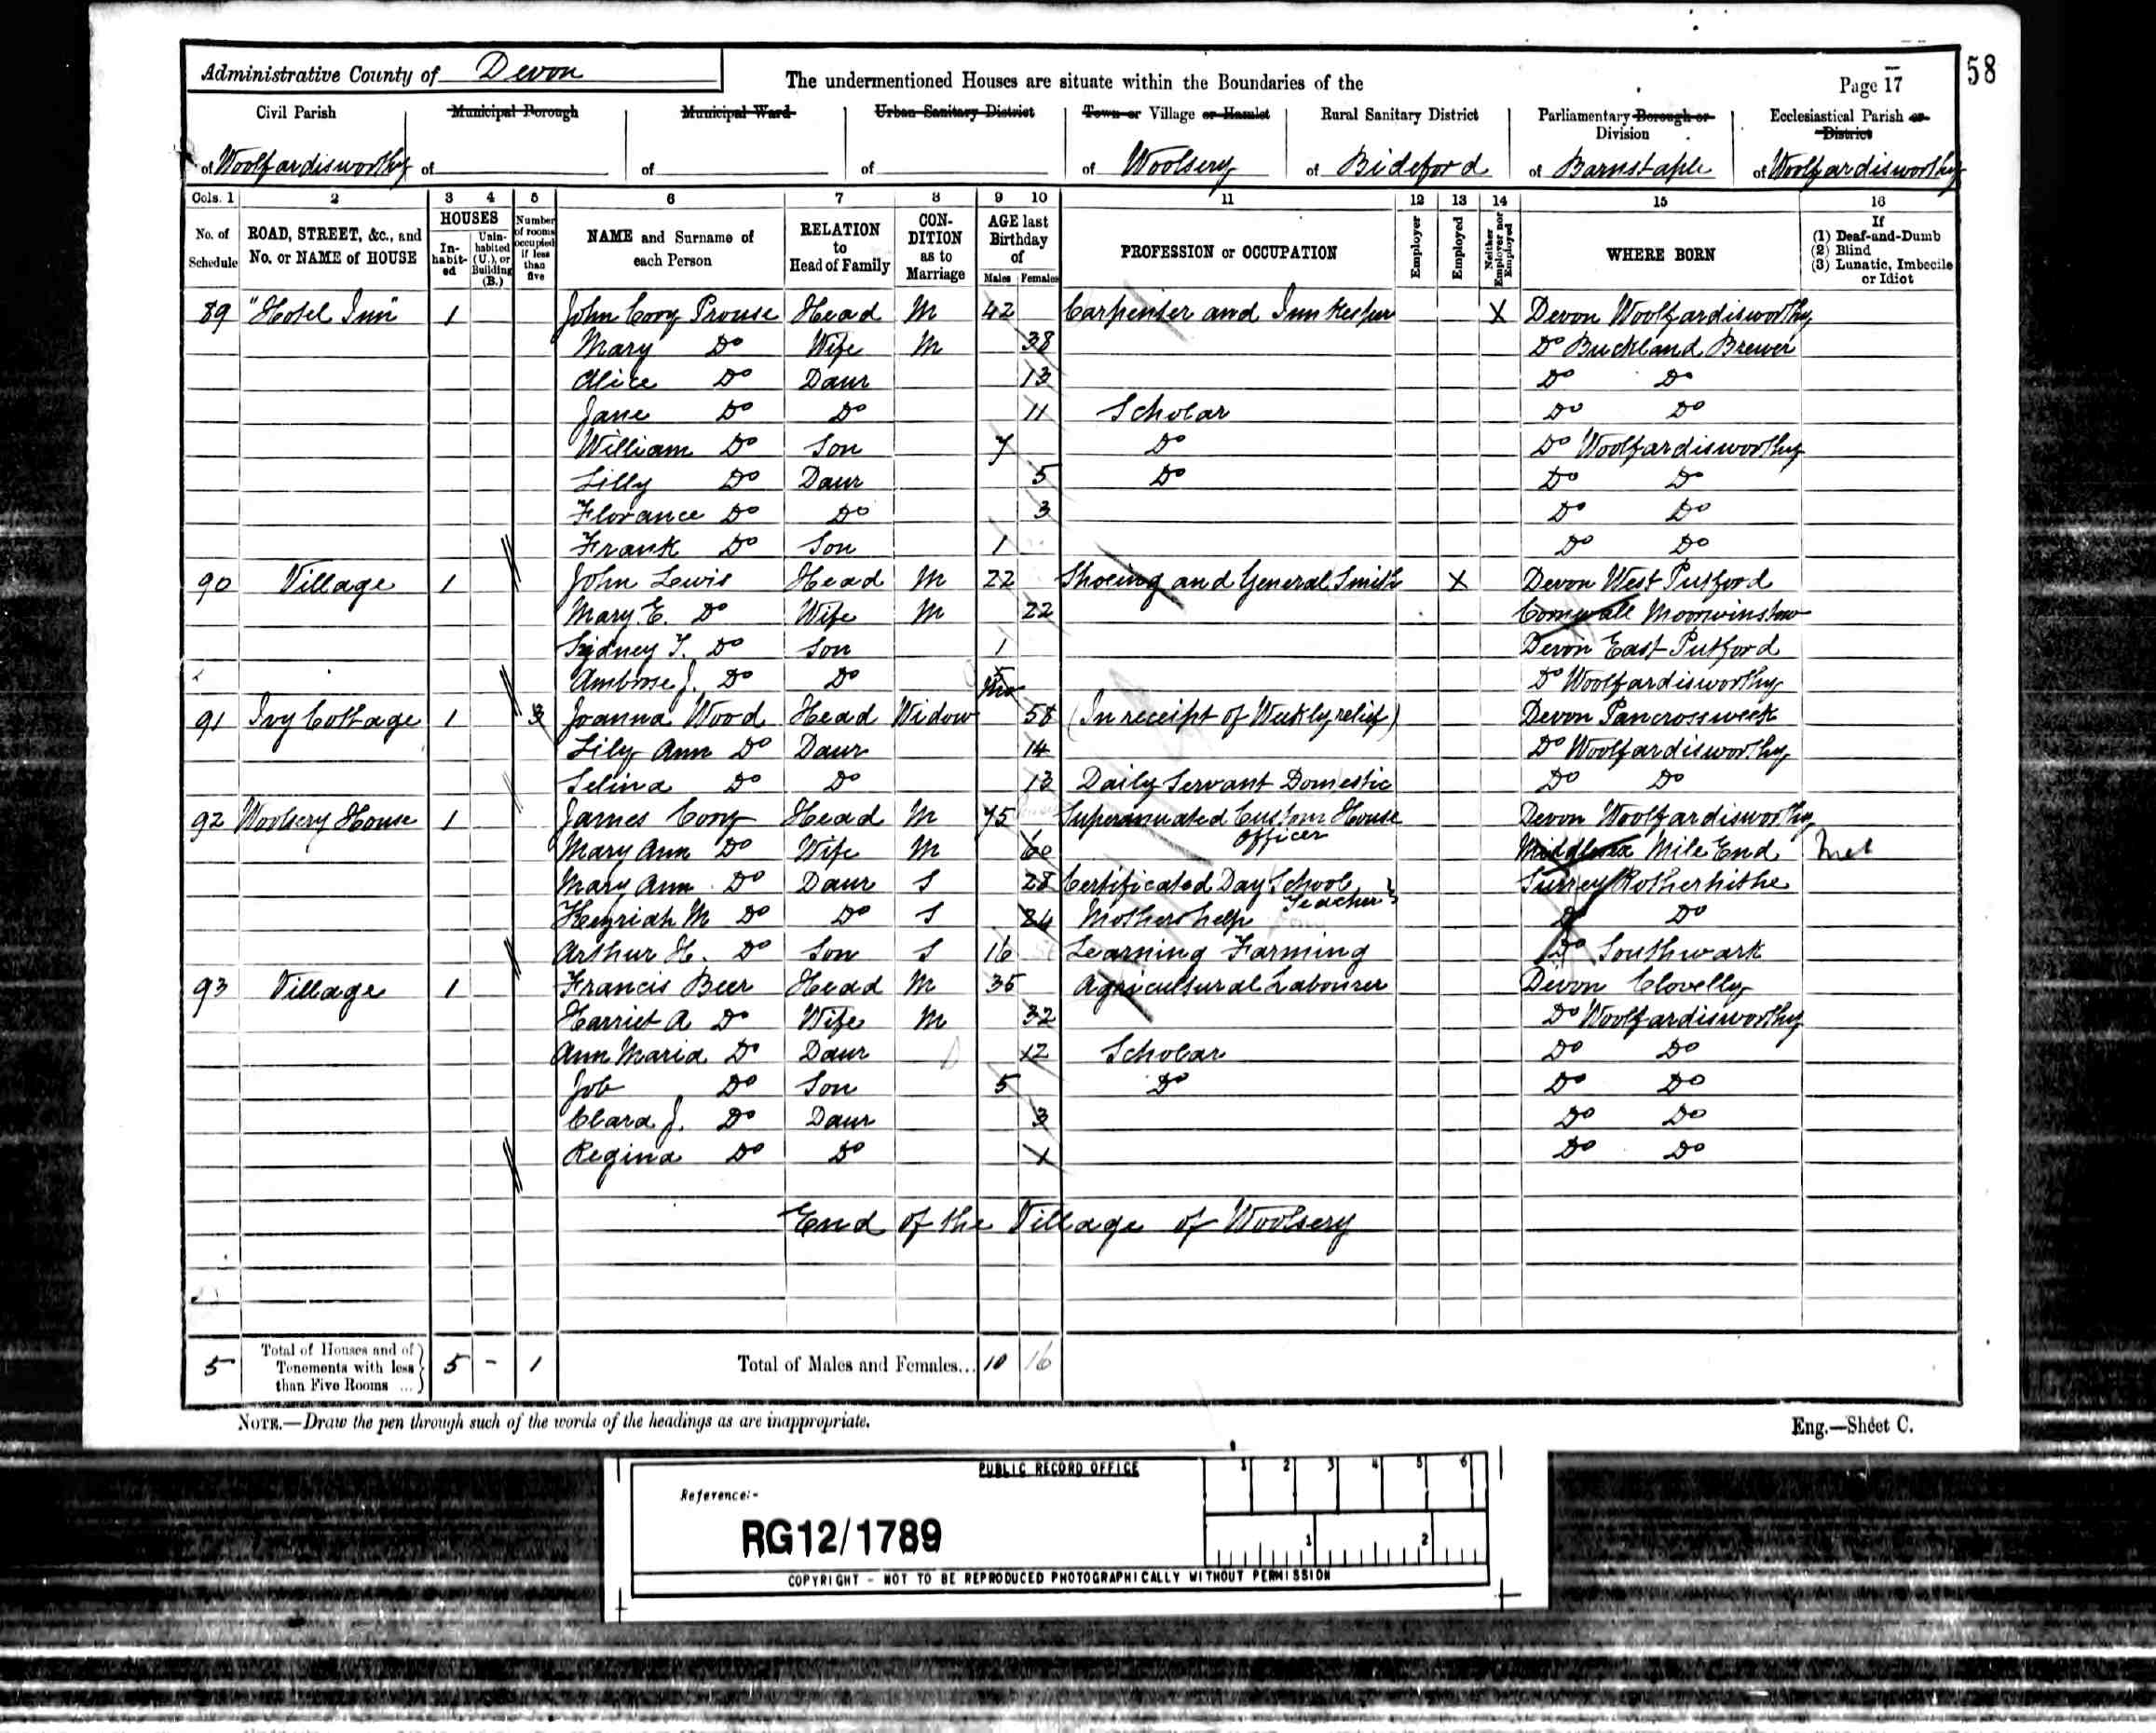 Administrative County of Devon
The undermentioned Houses are situate within the Boundaries of the
Page 17
58
Civil Parish
Municipal Borough
Municipal Ward
Urban Sanitary District
Town or Village or Hamlet
Rural Sanitary District
Parliamentary Borough or Division
Ecclesiastical Parish or District
of Woolfardisworthy of of of of Woolsery of Bideford of Barnstaple of Woolfardisworthy
Cols. 1 2 3 4 5 6 7 8 9 10 11 12 13 14 15 16
No. of Schedule
ROAD, STREET, &c., and No. or NAME of HOUSE
HOUSES
In-habit-ed
Unin-habited (U.), or Building (B.)
Number of rooms occupied if less than five
NAME and Surname of each Person
RELATION to Head of Family
CON-DITION as to Marriage
AGE last Birthday of
Males Females
PROFESSION or OCCUPATION
Employer
Employed
Neither Employer nor Employed
WHERE BORN
If
(1) Deaf-and-Dumb
(2) Blind
(3) Lunatic, Imbecile or Idiot
89 "Hotel Inn" 1 John Cory Prouse Head M 42 Carpenter and Inn Keeper X Devon Woolfardisworthy
Mary Do Wife M 38 Do Buckland Brewer
Alice Do Daur 13 Do Do
Jane Do Do 11 Scholar Do Do
William Do Son 7 Do Do Woolfardisworthy
Lilly Do Daur 5 Do Do Do
Florance Do Do 3 Do Do
Frank Do Son 1 Do Do
90 Village 1 John Lewis Head M 22 Shoeing and General Smith X Devon West Putford
Mary E. Do Wife M 22 Cornwall Moorwinstow
Sydney T. Do Son 1 Devon East Putford
Ambrose J. Do Do 5 Mo Do Woolfardisworthy
91 Ivy Cottage 1 3 Joanna Wood Head Widow 58 (In receipt of Weekly relief) Devon Pancrossweek
Lily Ann Do Daur 14 Do Woolfardisworthy
Selina Do Do 13 Daily Servant Domestic Do Do
92 Woolsery House 1 James Cory Head M 75 Superannuated Custom House Devon Woolfardisworthy
Officer
Mary Ann Do Wife M 60 Middlesex Mile End
Mary Ann Do Daur S 28 Certificated Day School Surrey Rotherhithe
Teacher
Heyriah M Do Do S 24 Mothers help Do Do
Arthur H. Do Son S 16 Learning Farming Do Southwark
93 Village 1 Francis Beer Head M 35 Agricultural Labourer Devon Clovelly
Harriet A Do Wife M 32 Do Woolfardisworthy
Ann Maria Do Daur 12 Scholar Do Do
Job Do Son 5 Do Do Do
Clara J. Do Daur 3 Do Do
Regina Do Do 1 Do Do
End of the Village of Woolsery
5 Total of Houses and of Tenements with less than Five Rooms ... 5 - 1 Total of Males and Females... 10 16
NOTE.—Draw the pen through such of the words of the headings as are inappropriate.
Eng.—Sheet C.
PUBLIC RECORD OFFICE
1 2 3 4 5 6
Reference:-
RG12/1789
1 2
COPYRIGHT - NOT TO BE REPRODUCED PHOTOGRAPHICALLY WITHOUT PERMISSION